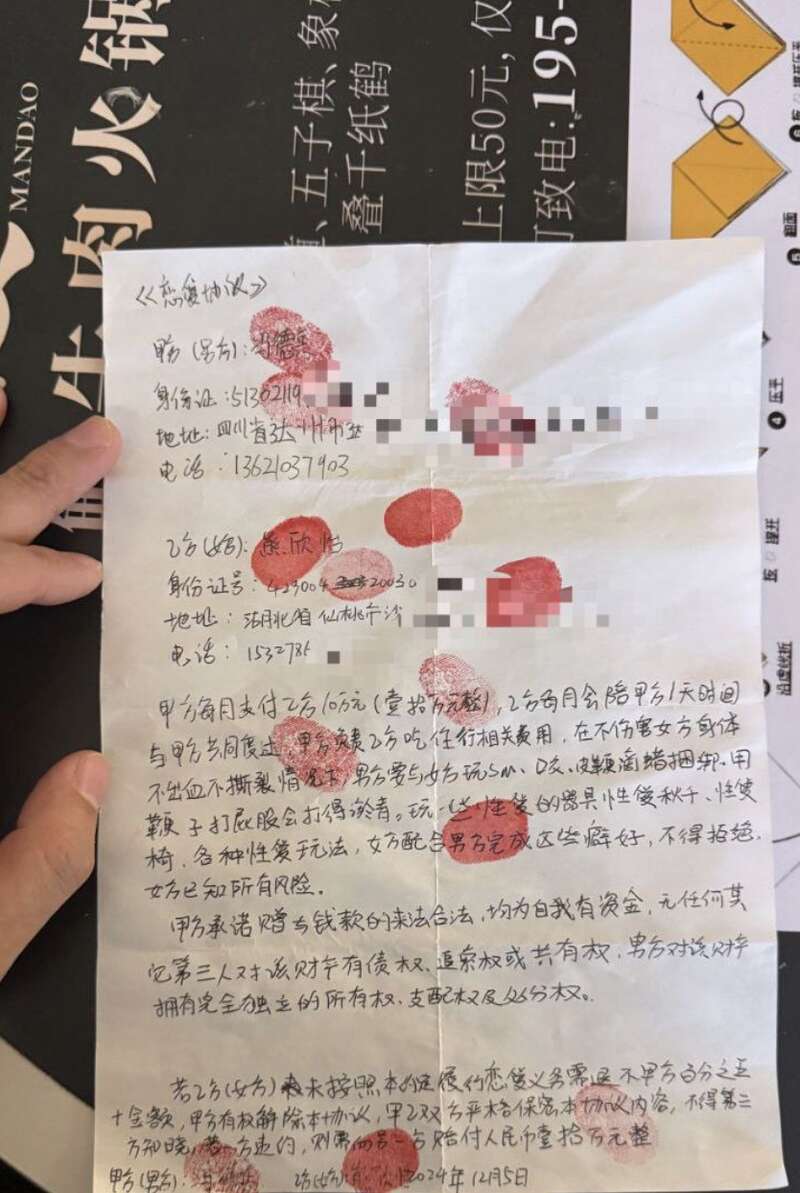 MANDAO
生肉火锅
、五子棋、象棋
叠千纸鹤
上限50元，仅
可致电:195-
《恋爱协议》
甲方（男方）：德
身份证：51302119
地址：四川省达州市
电话：13621037903
乙方(女方)：熊欣怡
身份证号：429004 20030
地址：湖北省仙桃市沙
电话：1532786
甲方每月支付乙方10万元（壹拾万元整），乙方每月会陪甲方1天时间
与甲方共同度过，甲方负责乙方吃住行相关费用，在不伤害女方身体
不出血不撕裂情况下，男方要与女方玩Sm、口交、皮鞭滴蜡捆绑、用
鞭子打屁股会打得淤青。玩一些性爱的器具性爱秋千、性爱
椅，各种性爱玩法，女方配合男方完成这些癖好，不得拒绝，
女方已知所有风险。
甲方承诺赠与钱款的来法合法，均为自我有资金，无任何其
它第三人对该财产有债权、追索权或共有权，男方对该财产
拥有完全独立的所有权、支配权及处分权。
若乙方(女方)未按照本约定履行恋爱义务需退还甲方百分之五
十金额，甲方有权解除本协议，甲乙双方严格保密本协议内容，不得第三
方知晓，若一方违约，则需向另一方赔付人民币壹拾万元整
甲方(男方)： 乙方(女方)： 2024年12月5日
翻面
压平
沿虚线折